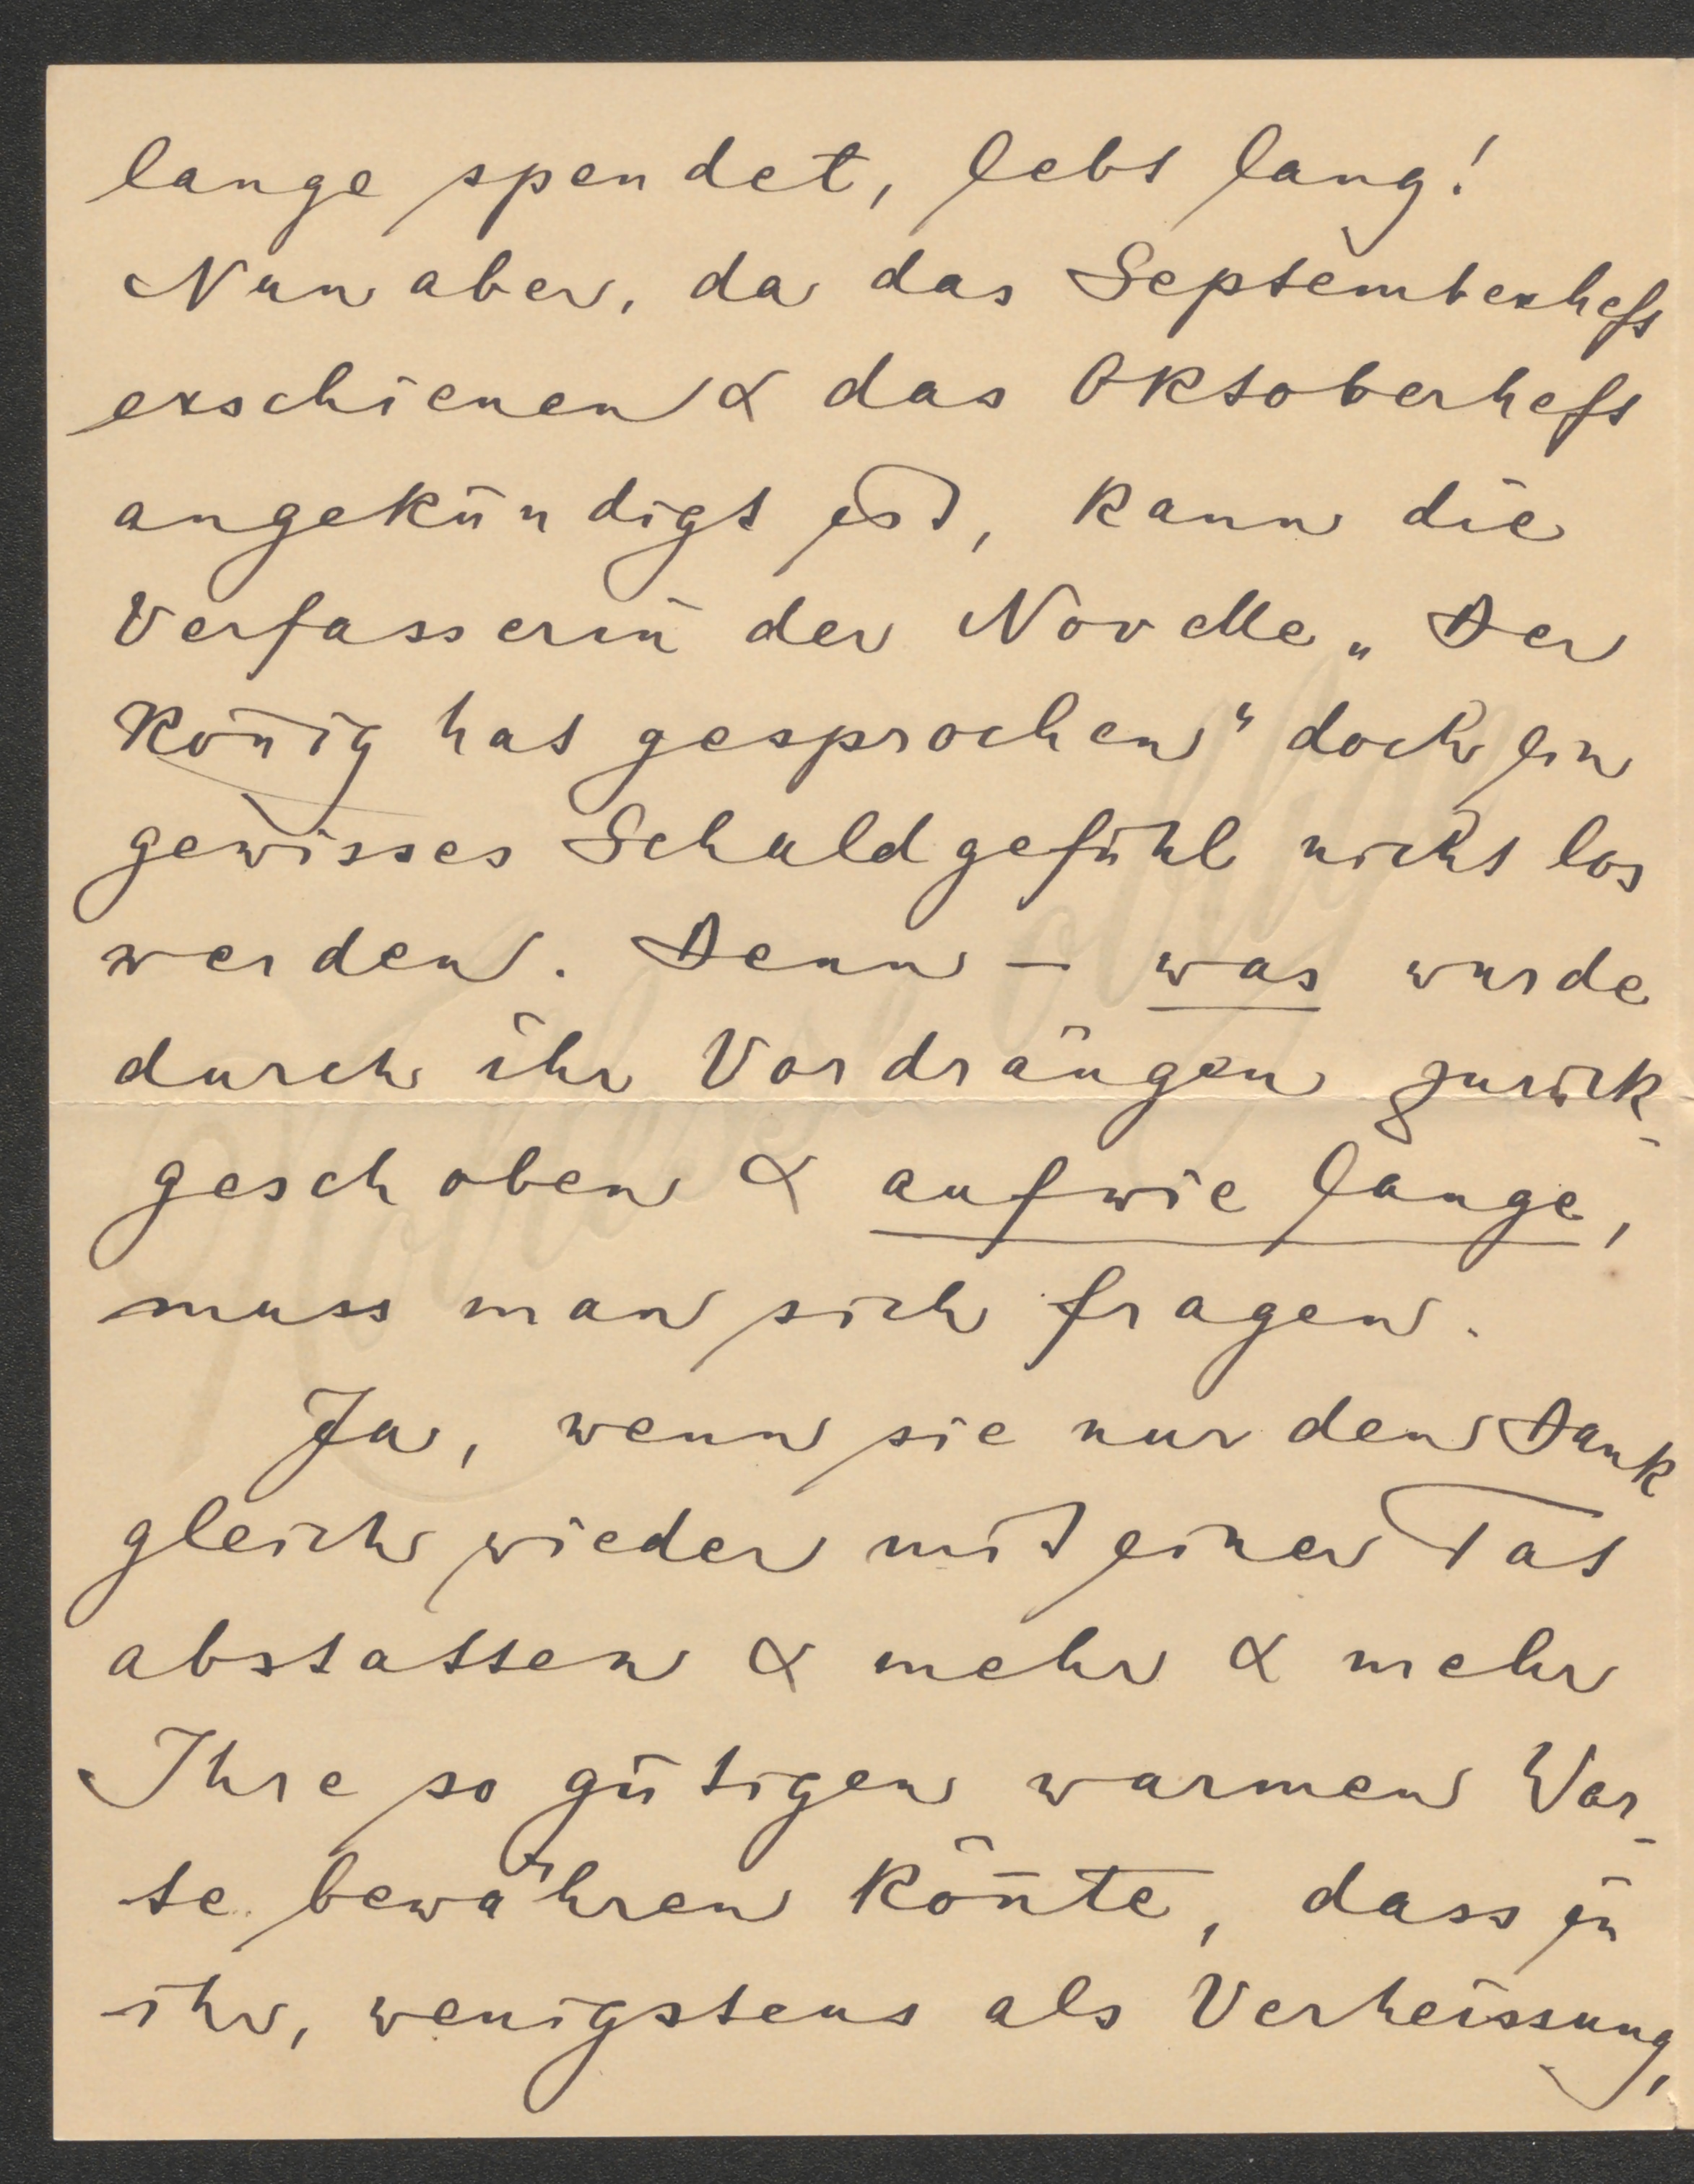 lange spendet, lebt lang!
Nun aber, da das Septemberheft
erschienen & das Oktoberheft
angekündigt ist, kann die
Verfasserin der Novelle „Der
König hat gesprochen“ doch ein
gewisses Schuldgefühl nicht los
werden. Denn — was wurde
durch ihr Vordrängen zurück-
geschoben & auf wie lange,
muss man sich fragen.
Ja, wenn sie nur den Dank
gleich wieder mit einer Tat
abstatten & mehr & mehr
Ihre so gütigen warmen Wor-
te bewähren kön̄te, dass in
ihr, wenigstens als Verheissung,